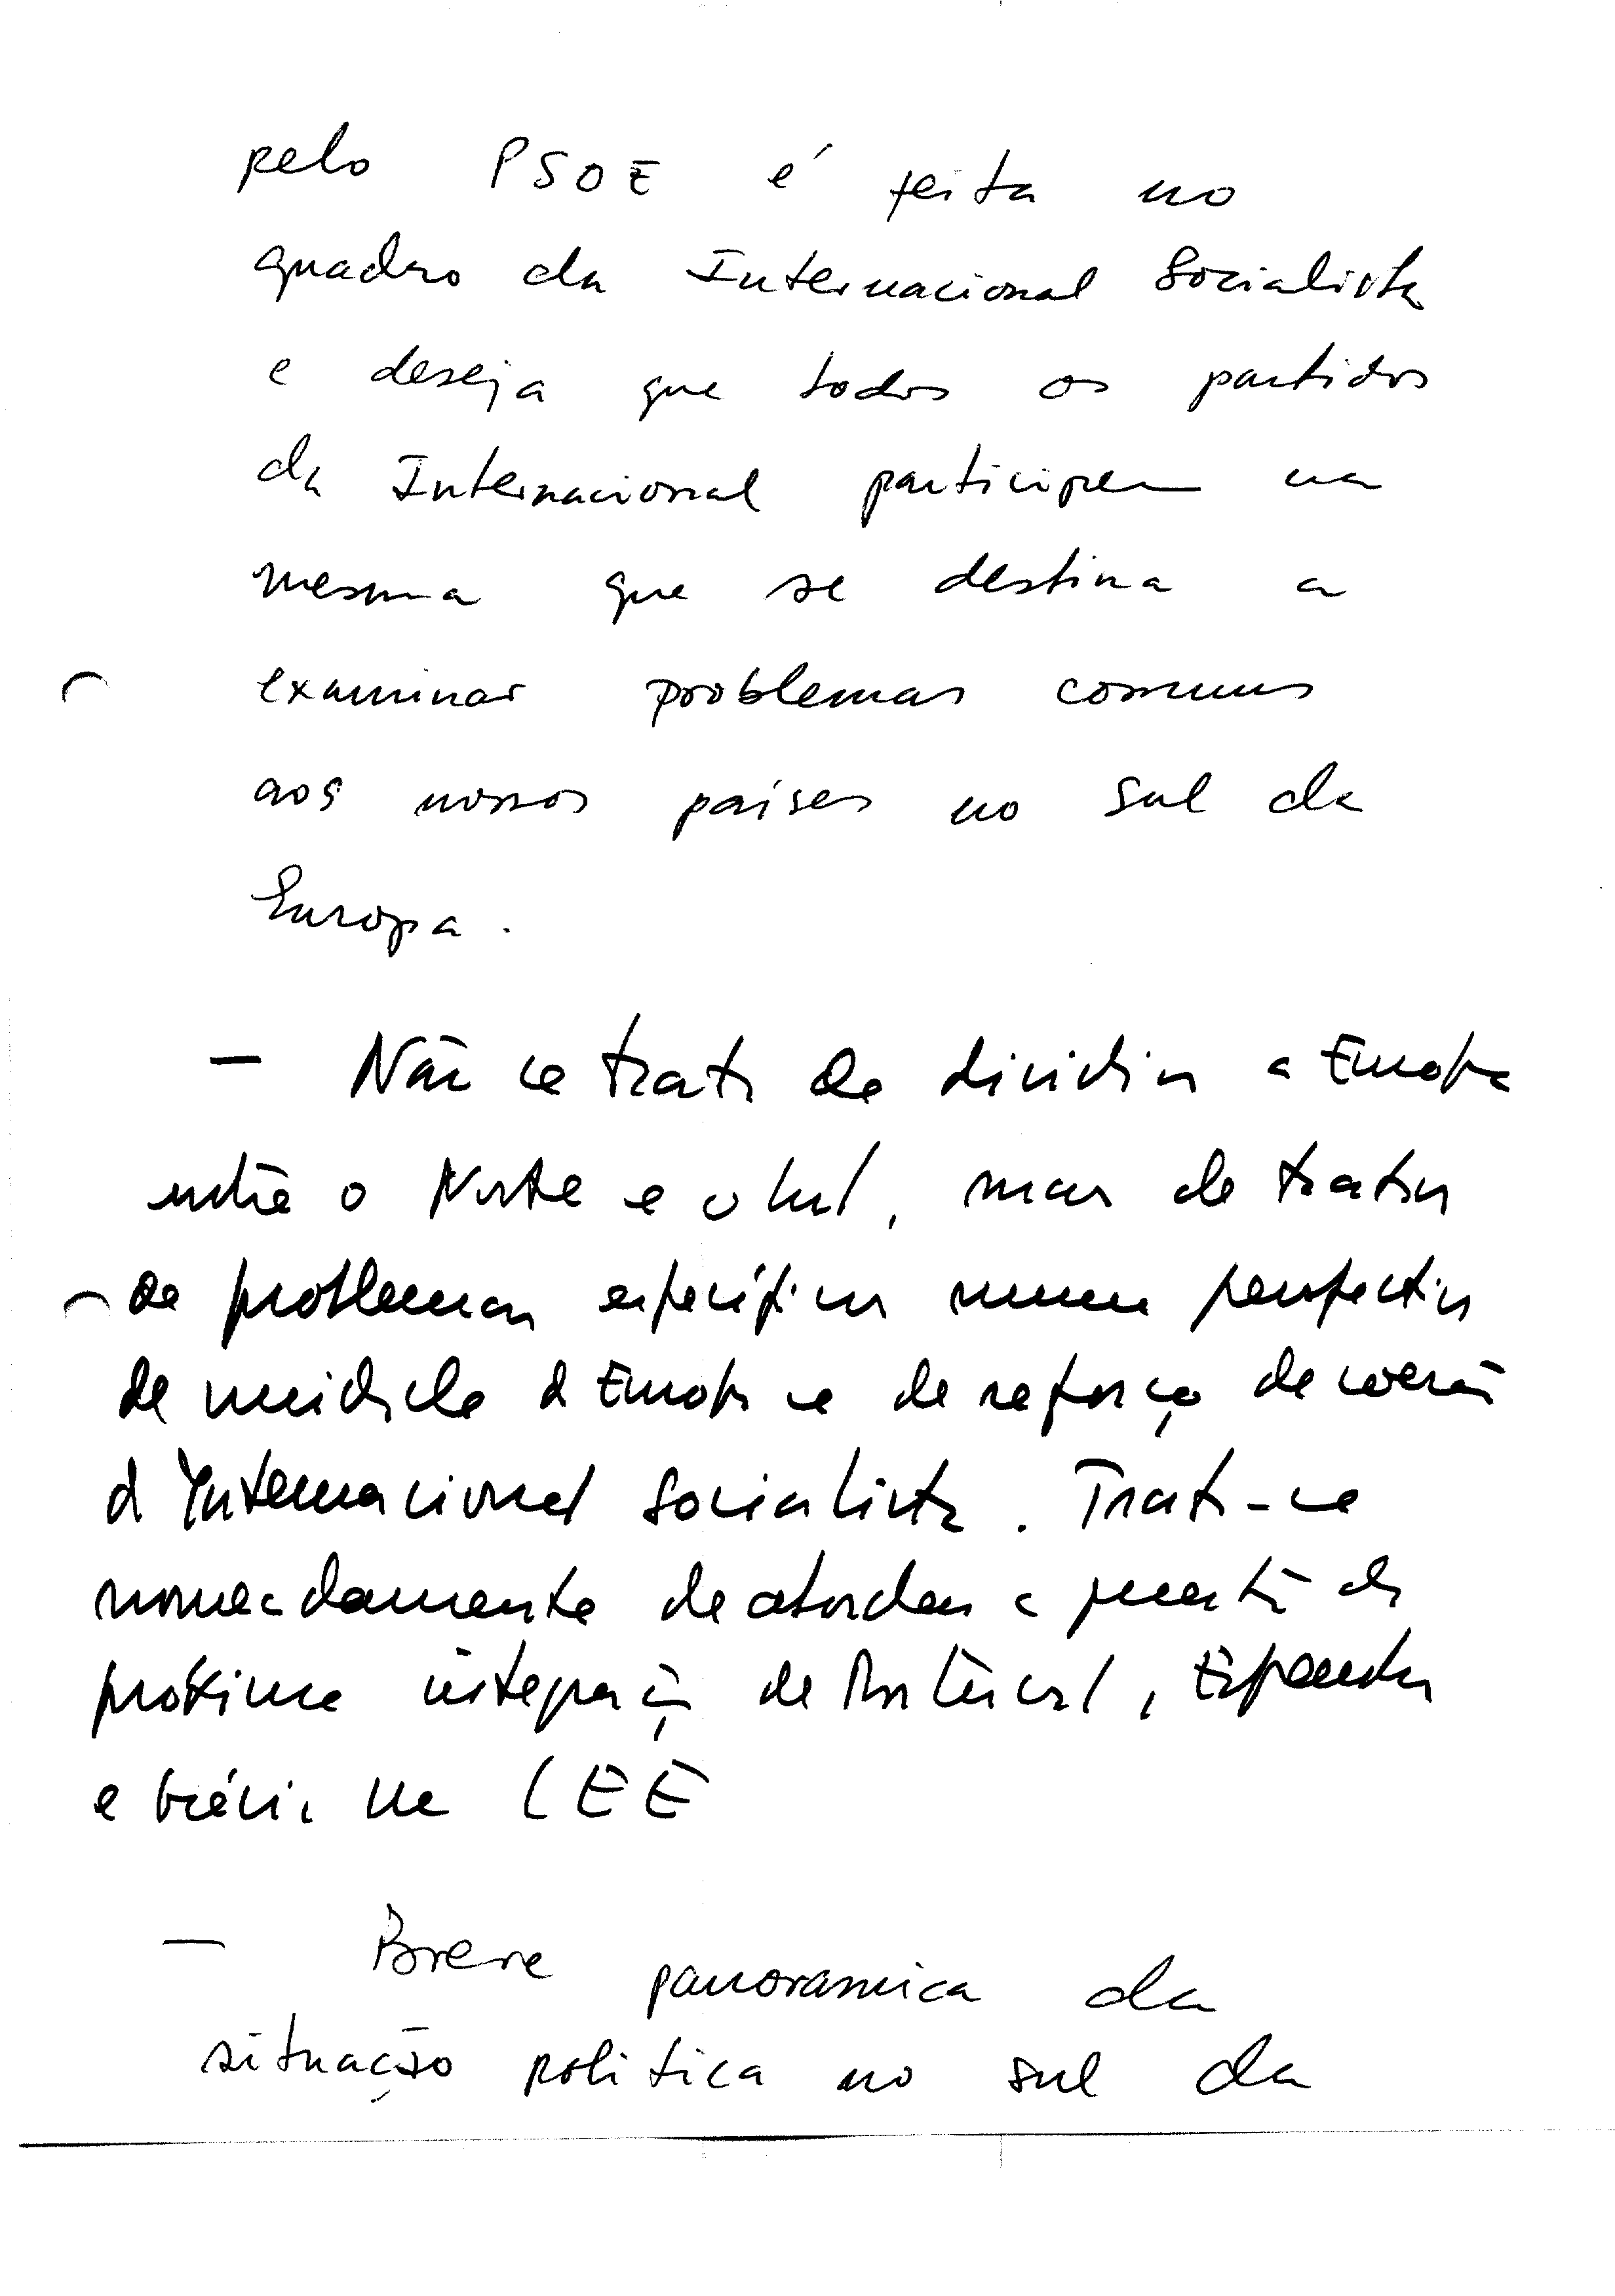 pelo PSOE é feita no
quadro da Internacional Socialista
e deseja que todos os partidos
da Internacional participem na
mesma que se destina a
examinar problemas comuns
aos nossos países no sul da
Europa.
— Não se trata de dividir a Europa
entre o Norte e o Sul, mas de tratar
de problemas específicos numa perspectiva
de unidade da Europa e de reforço de coesão
da Internacional Socialista. Trata-se
nomeadamente de abordar a questão da
próxima integração de Portugal, Espanha
e Grécia na CEE
— Breve panoramica da
situação politica no sul da